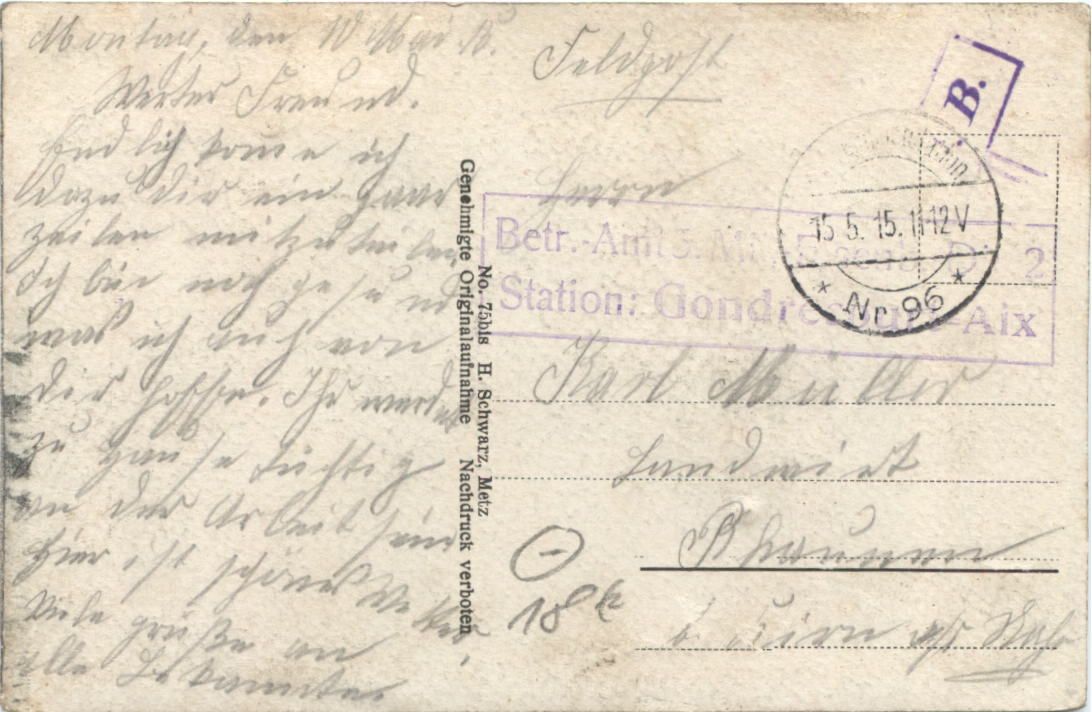 Montag, den 10 Mai 15.
Werter Freund.
Endlich kome ich
dazu dir ein paar
zeilen mitzuteilen
Ich bin noch gesund
was ich auch von
dir hoffe. Ihr werdet
zu Hause tüchtig
an der Arbeit sein
Hier ist schönes Wetter
Viele grüße an
alle Bekannte
Feldpost
B.
15 5. 15. 11-12V
* Nr. 96 *
Betr.-Amt 3. Mil. Eisenb. D. 2
Station: Gondrecourt-Aix
Herrn
Karl Müller
Landwirt
Rhaunen
b. Kirn a/ Nahe
18
No. 75bis H. Schwarz, Metz
Genehmigte Originalaufnahme Nachdruck verboten